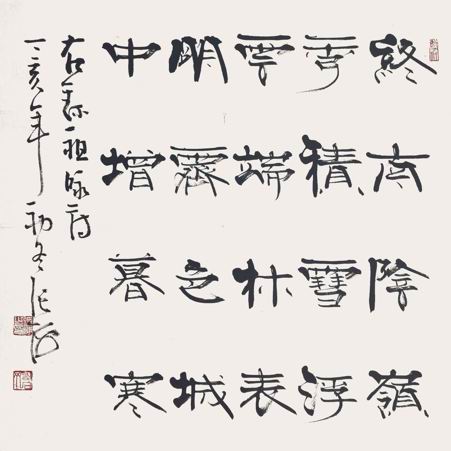 終南陰嶺
秀積雪浮
雲端林表
明霽色城
中增暮寒
右錄祖詠詩
丁亥年初冬張海